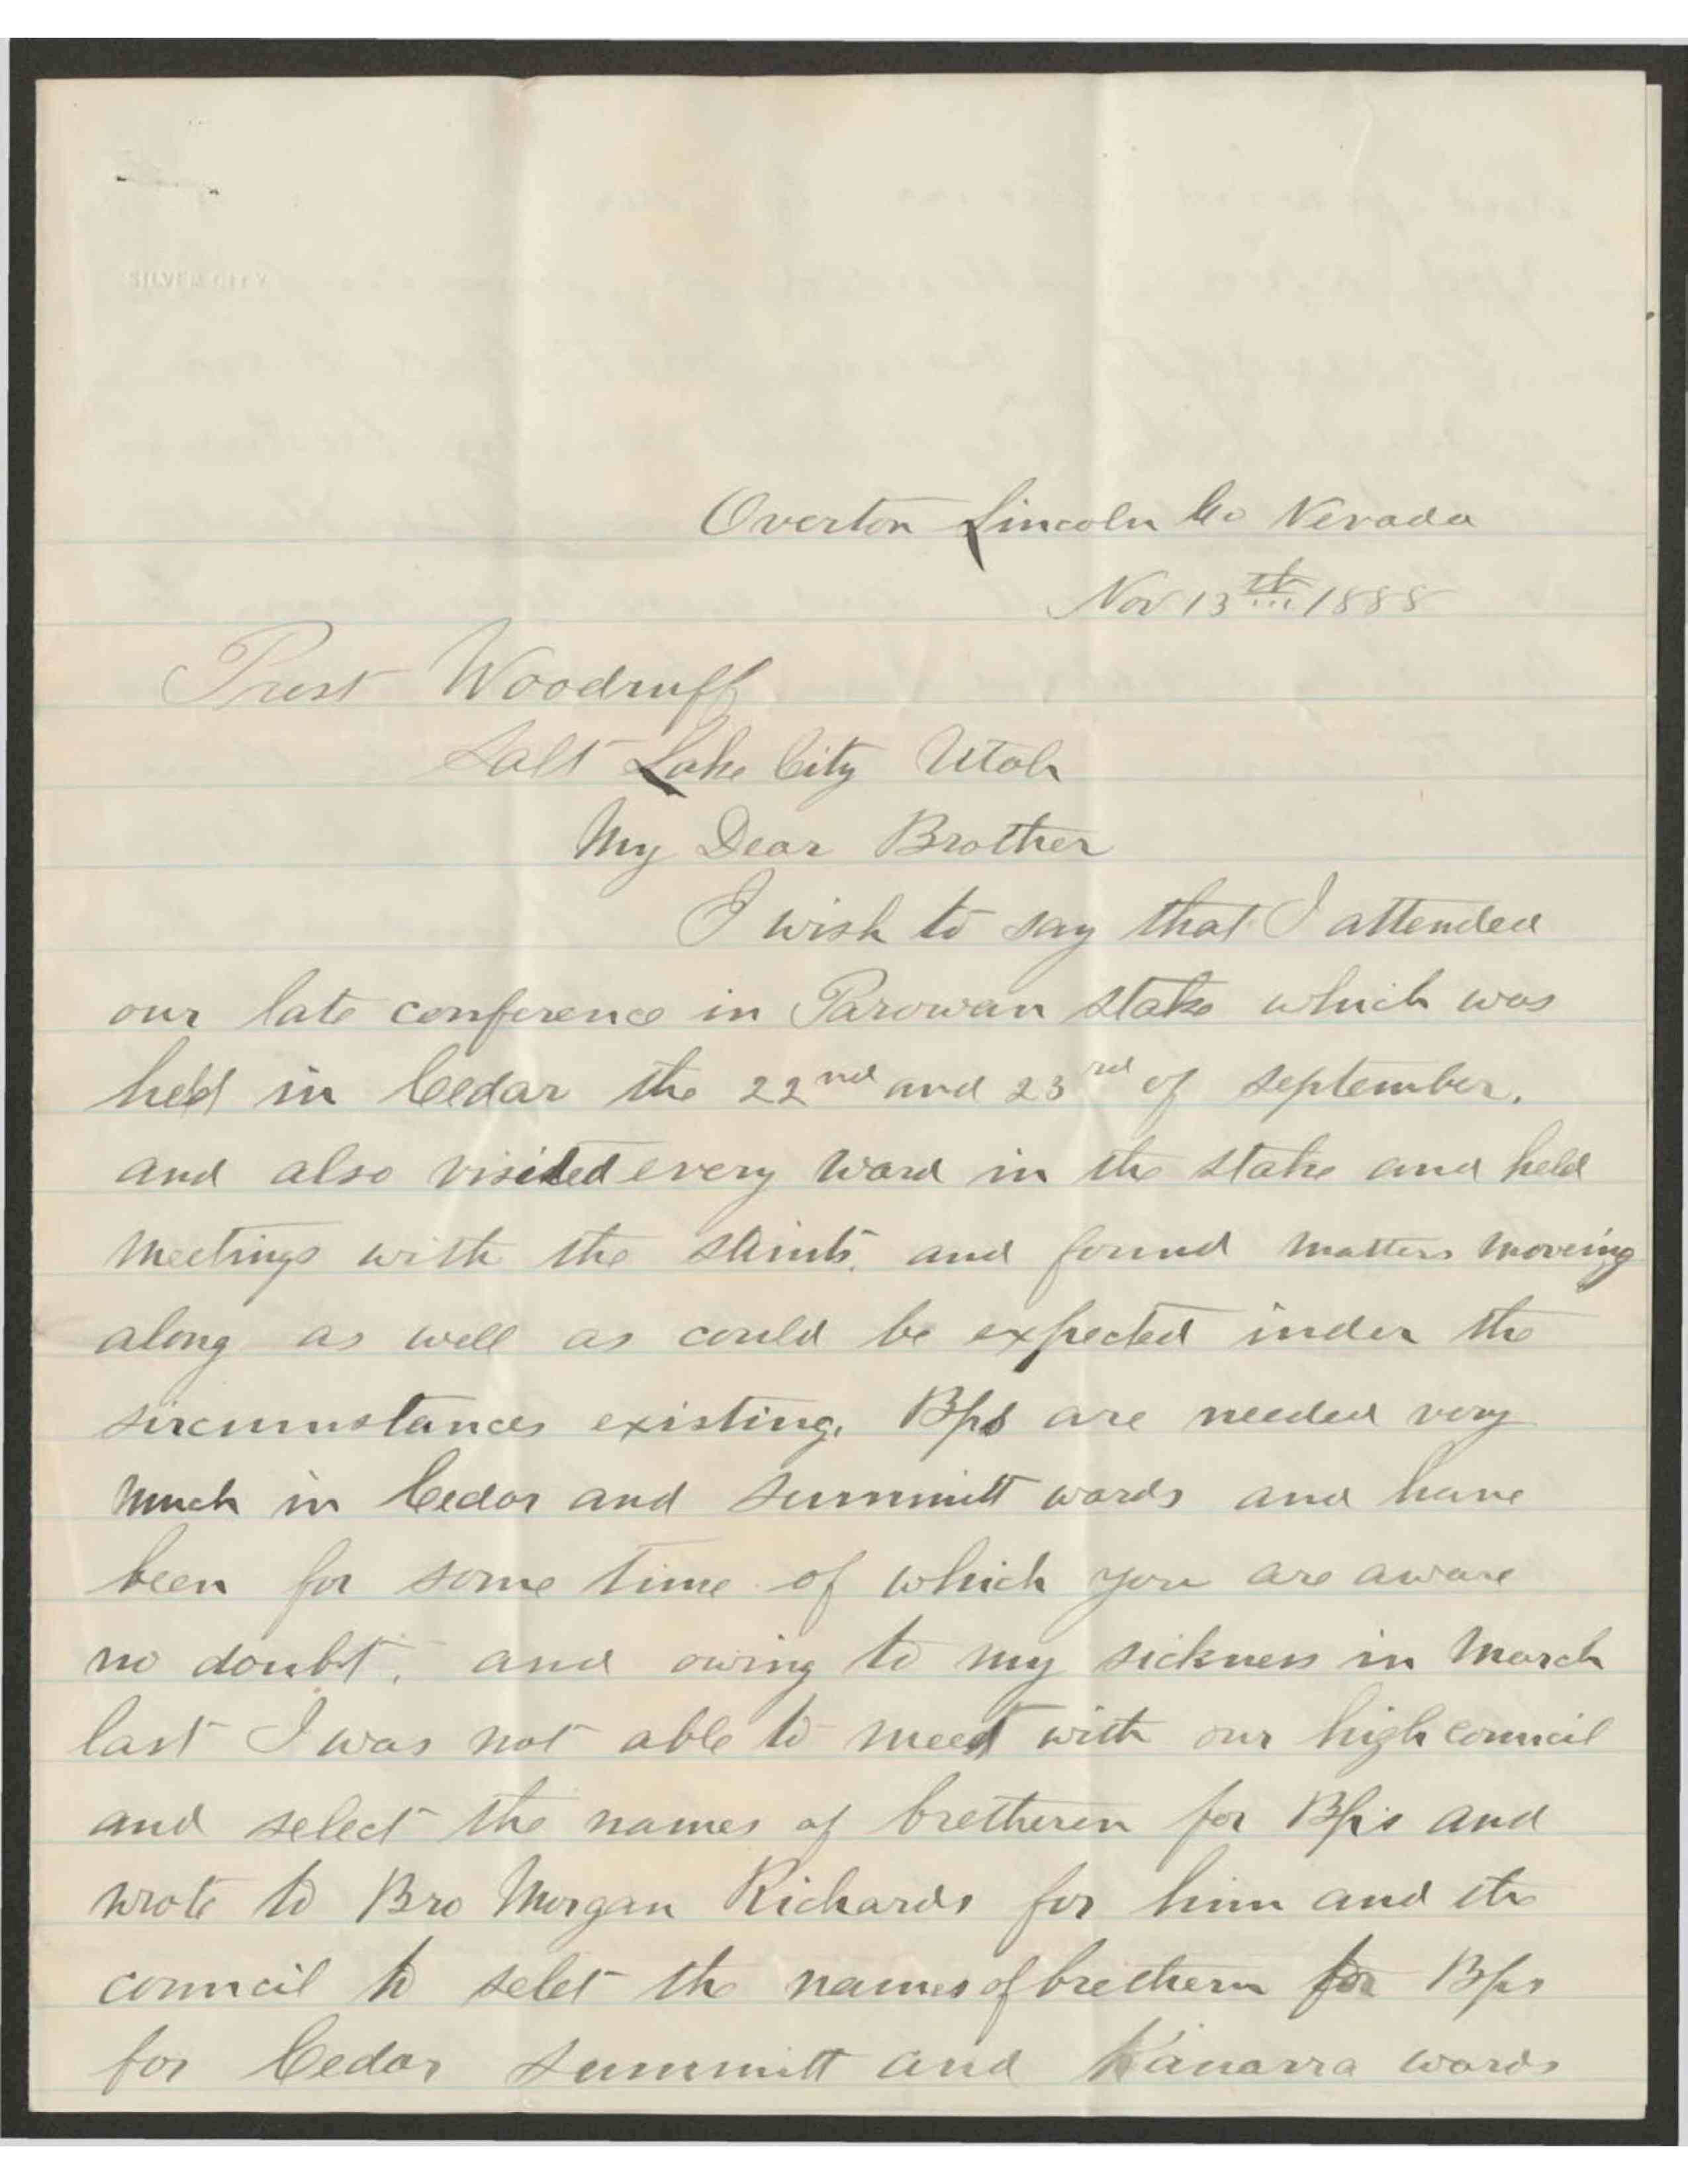 SILVER CITY
Overton Lincoln Co Nevada
Nov 13th 1888
Prest Woodruff
Salt Lake City Utah
My Dear Brother
I wish to say that I attended
our late conference in Parowan stake which was
held in Cedar the 22nd and 23rd of september.
and also visited every ward in the stake and held
meetings with the saints. and found matters moveing
along as well as could be expected inder the
sircumstances existing. Bps are needed very
much in Cedar and Summitt wards and have
been for some time of which you are aware
no doubt. and owing to my sickness in March
last I was not able to meet with our high council
and select the names of bretheren for Bp's and
wrote to Bro Morgan Richards for him and the
council to selet the names of brethern for Bps
for Cedar Summitt and Kanarra wards